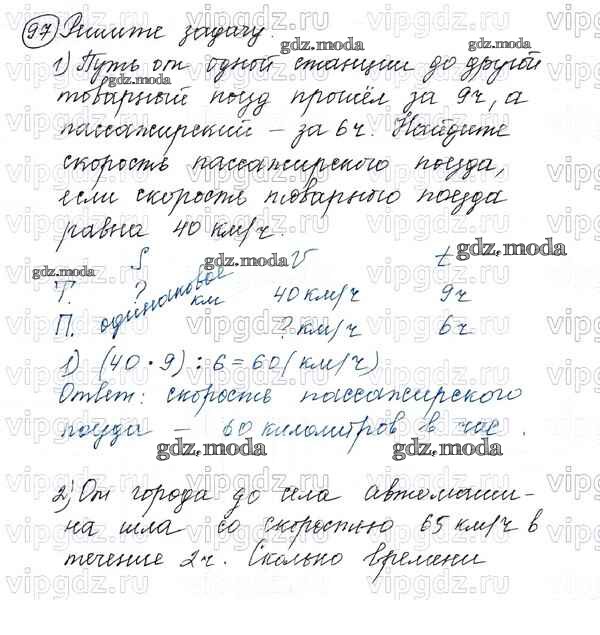 97) Решите задачу.
1) Путь от одной станции до другой
товарный поезд прошёл за 9ч, а
пассажирский – за 6ч. Найдите
скорость пассажирского поезда,
если скорость товарного поезда
равна 40 км/ч.
S V t
Т. ? км 40 км/ч 9ч
П. одинаковое ? км/ч 6ч
1) (40 · 9) : 6 = 60 (км/ч)
Ответ: скорость пассажирского
поезда – 60 километров в час.
2) От города до села автомаши-
на шла со скоростью 65 км/ч в
течение 2ч. Сколько времени
gdz.moda
vipgdz.ru